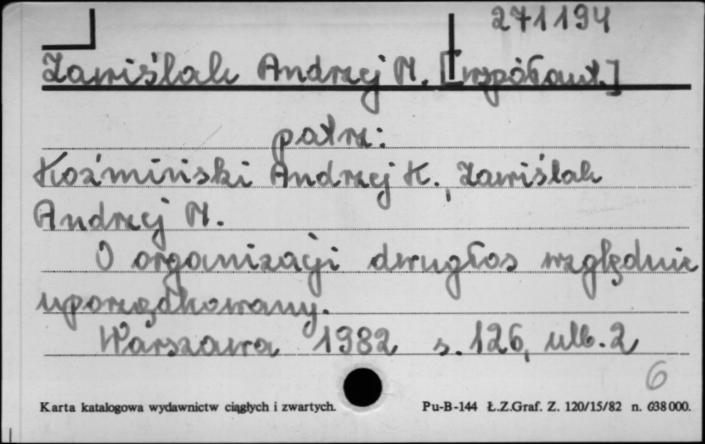 271194
Zawiślak Andrzej M. [współaut.]
patrz:
Koźmiński Andrzej K., Zawiślak
Andrzej M.
O organizacji dwugłos względnie
uporządkowany.
Warszawa 1982 s. 126, ulb. 2
6
Karta katalogowa wydawnictw ciągłych i zwartych. Pu-B-144 Ł.Z.Graf. Z. 120/15/82 n. 638000.